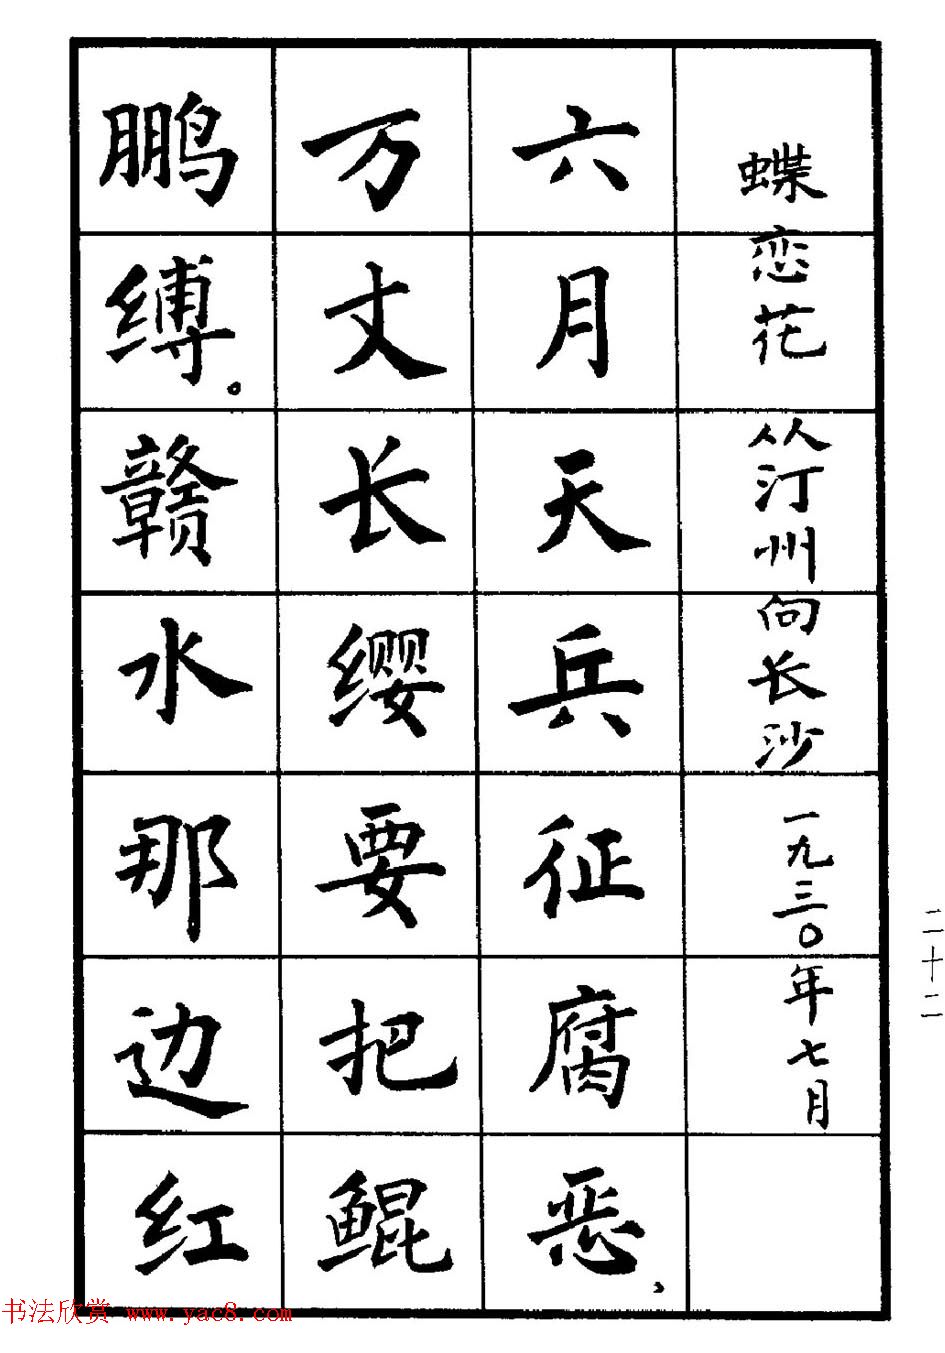 蝶恋花 从汀州向长沙 一九三〇年七月
六月天兵征腐恶，
万丈长缨要把鲲
鹏缚。赣水那边红
二十二
书法欣赏 www.yac8.com